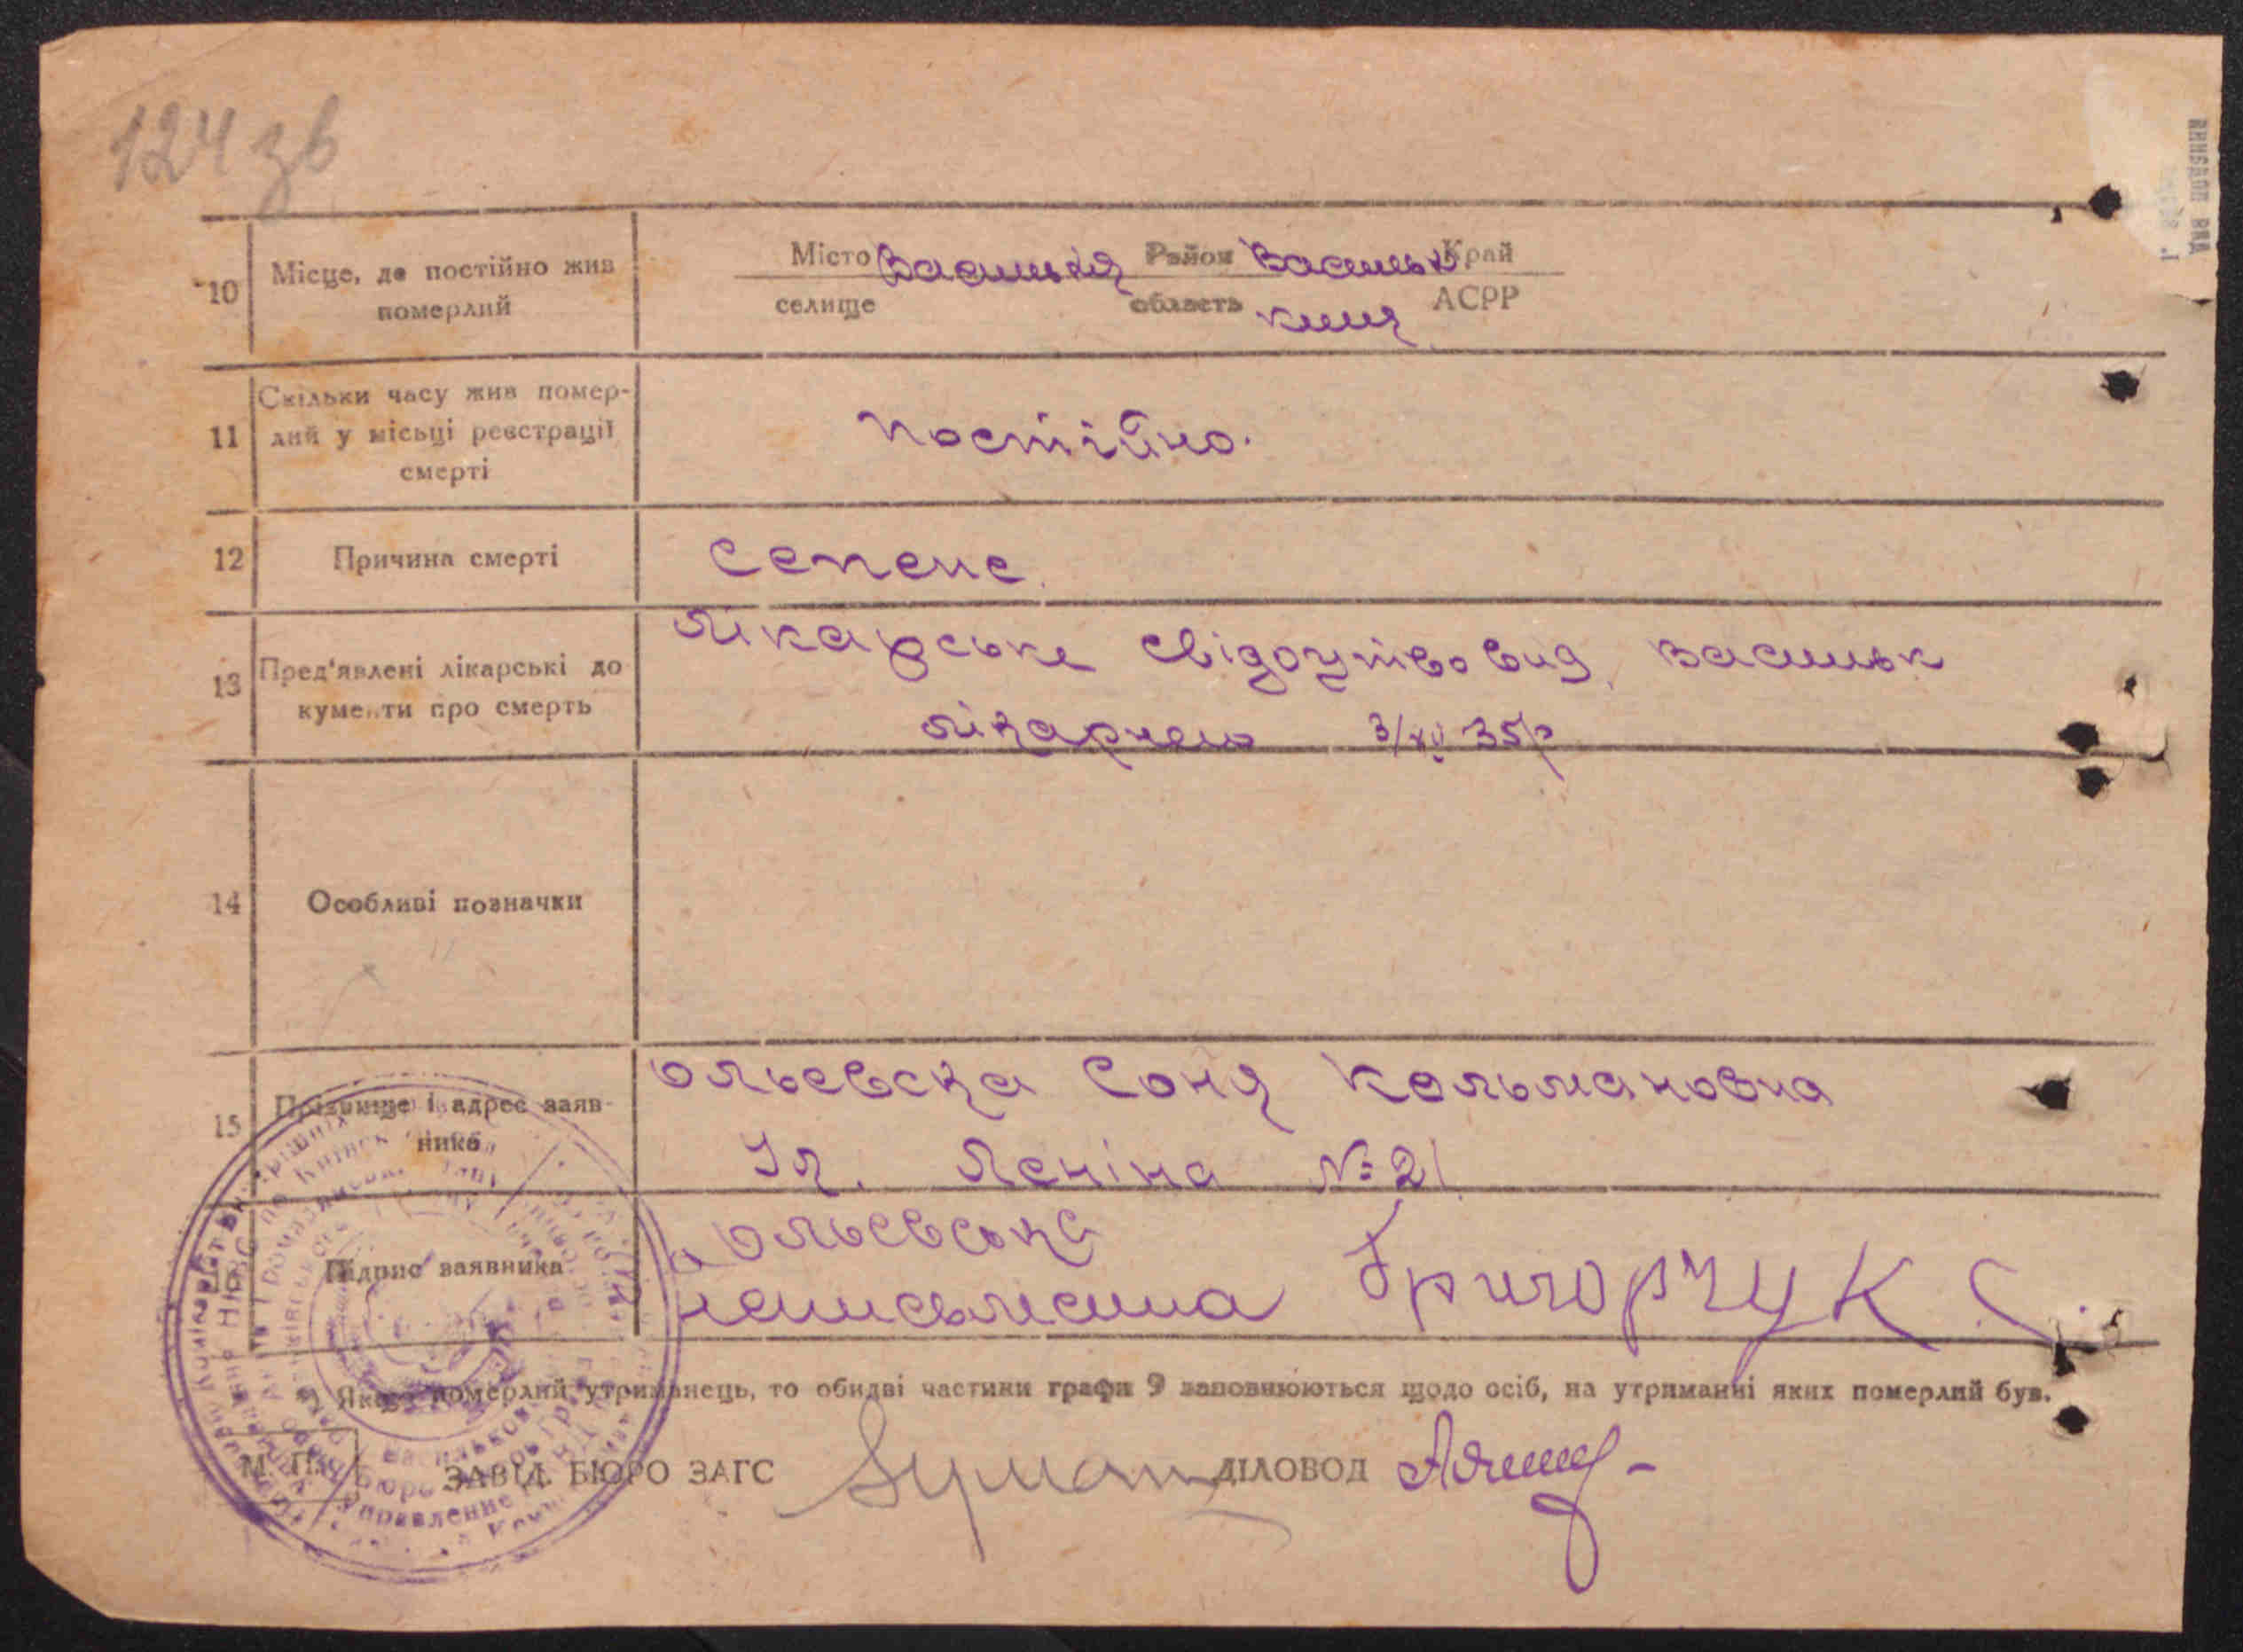 124 зв
10 Місце, де постійно жив померлий
Місто Васильків Район Васильк Край
селище область кий АСРР
11 Скільки часу жив помер-
лий у місьці реєстрації
смерті
постійно.
12 Причина смерті
Сепсис.
13 Пред'явлені лікарські до
кументи про смерть
Лікарське свідоцтво вид. Васильк
лікарнею 3/XII 35р
14 Особливі позначки
15 Прізвище і адрес заяв-
ника
Ольевска Соня Кольмановна
Ул. Леніна № 21
16 Підпис заявника
Ольевська
неписьменна Григорчук С
Якщо померлий утриманець, то обидві частини графи 9 заповнюються щодо осіб, на утриманні яких померлий був.
М. П. ЗАВІД. БЮРО ЗАГС ДІЛОВОД